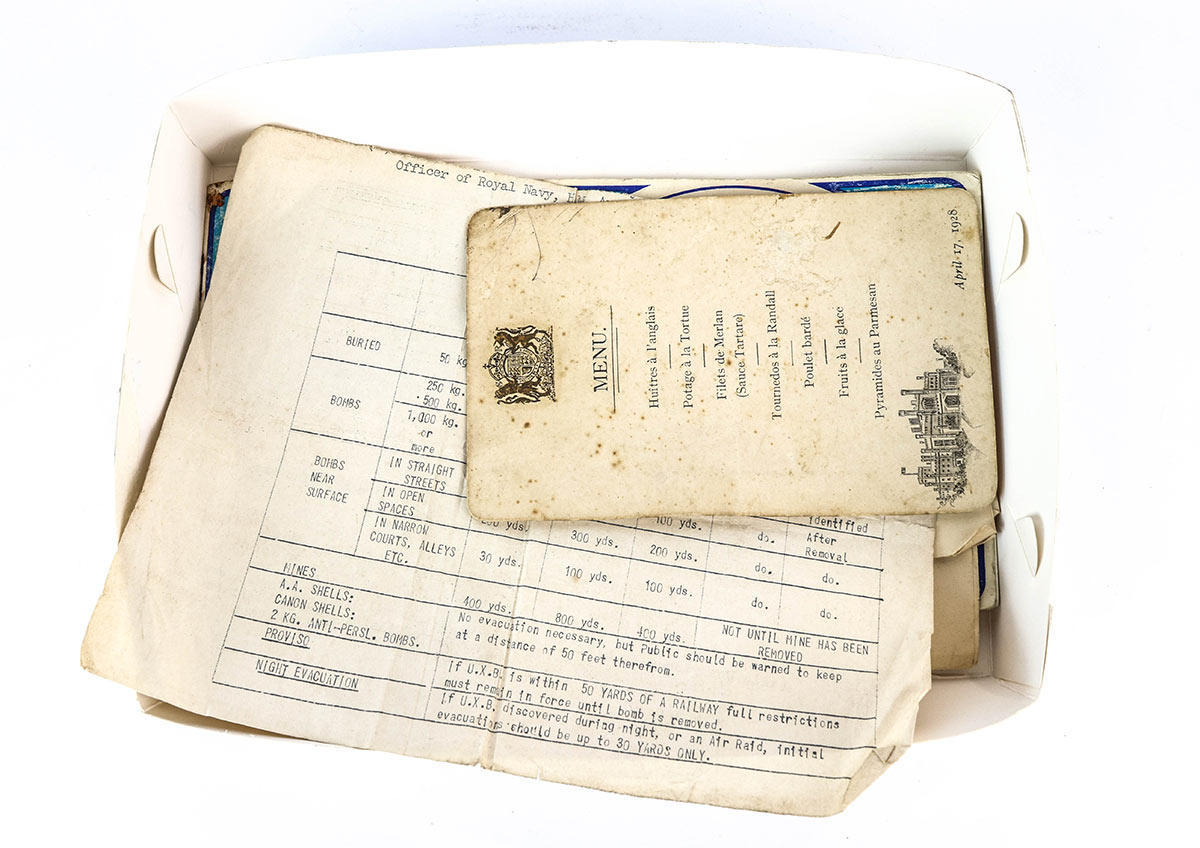 Officer of Royal Navy,
BURIED
50 kg
BOMBS
250 kg.
500 kg.
1,000 kg.
or
more
BOMBS
NEAR
SURFACE
IN STRAIGHT
STREETS
IN OPEN
SPACES
IN NARROW
COURTS, ALLEYS
ETC.
200 yds.
300 yds.
100 yds.
do.
identified
After
Removal
30 yds.
100 yds.
200 yds.
do.
do.
100 yds.
do.
do.
MINES
400 yds.
800 yds.
400 yds.
NOT UNTIL MINE HAS BEEN
REMOVED
A.A. SHELLS:
CANON SHELLS:
2 KG. ANTI-PERSL. BOMBS.
No evacuation necessary, but Public should be warned to keep
at a distance of 50 feet therefrom.
PROVISO
If U.X.B. is within 50 YARDS OF A RAILWAY full restrictions
must remain in force until bomb is removed.
NIGHT EVACUATION
If U.X.B. discovered during night, or an Air Raid, initial
evacuation should be up to 30 YARDS ONLY.
MENU.
Huîtres à l'anglais
Potage à la Tortue
Filets de Merlan
(Sauce Tartare)
Tournedos à la Randall
Poulet bardé
Fruits à la glace
Pyramides au Parmesan
April 17, 1928